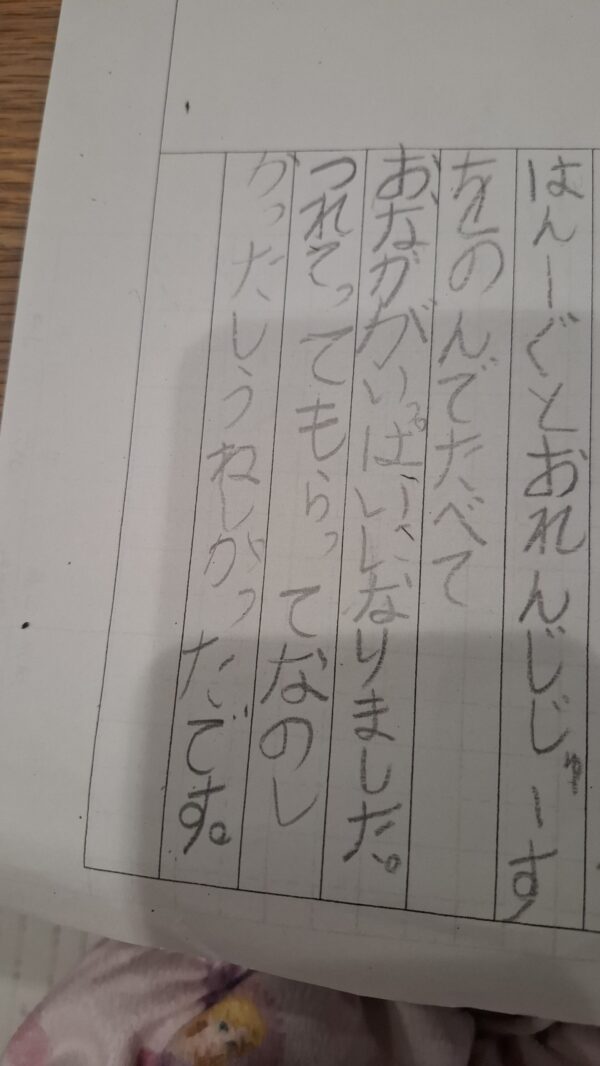 はんーぐとおれんじじゅーす
をのんでたべて
おなががいっぱいになりました。
つれてってもらってなのし
かったしうねしがっだです。